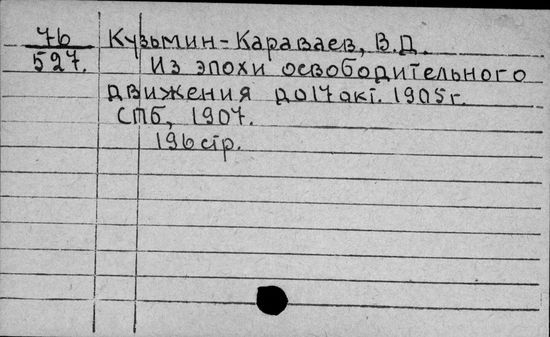 76 Кузьмин-Караваев, В.Д.
527. Из эпохи освободительного
движения до 17 окт. 1905 г.
СПб, 1907.
196 стр.